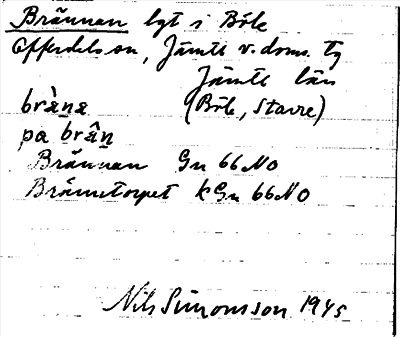 Brännan lgt i Böle
Offerdals sn, Jämtl v. doms. tg
Jämtl län
bràna (Böle, Stavre)
pa brân
Brännan Gn 66 NO
Brännetorpet k Gn 66 NO
Nils Simonsson 1945